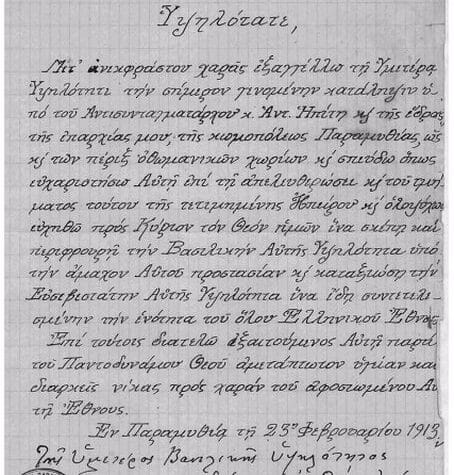 Ὑψηλότατε,
Μετ' ἀνεκφράστου χαρᾶς ἐξαγγέλλω τῇ Ὑμετέρᾳ
Ὑψηλότητι τὴν σήμερον γενομένην κατάληψιν ὑ-
πό τοῦ Ἀντισυνταγματάρχου κ. Ἀντ. Ἠπίτη κ τῆς ἕδρας
τῆς ἐπαρχίας μου, τῆς κωμοπόλεως Παραμυθίας, ὡς
κ τῶν πέριξ ὀθωμανικῶν χωρίων κ σπεύδω ὅπως
εὐχαριστήσω Αὐτῇ ἐπὶ τῇ ἀπελευθερώσει κ τοῦ τμή-
ματος τούτου τῆς τετιμημένης Ἠπείρου κ ὁλοψύχως
εὐχηθῶ πρὸς Κύριον τὸν Θεὸν ἡμῶν ἵνα σκέπῃ καὶ
περιφρουρῇ τὴν Βασιλικὴν Αὐτῆς Ὑψηλότητα ὑπὸ
τὴν ἄμαχον Αὐτοῦ προστασίαν κ καταξιώσῃ τὴν
Εὐσεβεστάτην Αὐτῆς Ὑψηλότητα ἵνα ἴδῃ συντετελε-
σμένην τὴν ἑνότητα τοῦ ὅλου Ἑλληνικοῦ Ἔθνους
Ἐπὶ τούτοις διατελῶ ἐξαιτούμενος Αὐτῇ παρὰ
τοῦ Παντοδυνάμου Θεοῦ ἀμετάπτωτον ὑγείαν καὶ
διαρκεῖς νίκας πρὸς χαρὰν τοῦ ἀφοσιωμένου Αὐ-
τῇ Ἔθνους.
Ἐν Παραμυθίᾳ τῇ 23ῃ Φεβρουαρίου 1913
Τῆς Ὑμετέρας Βασιλικῆς Ὑψηλότητος